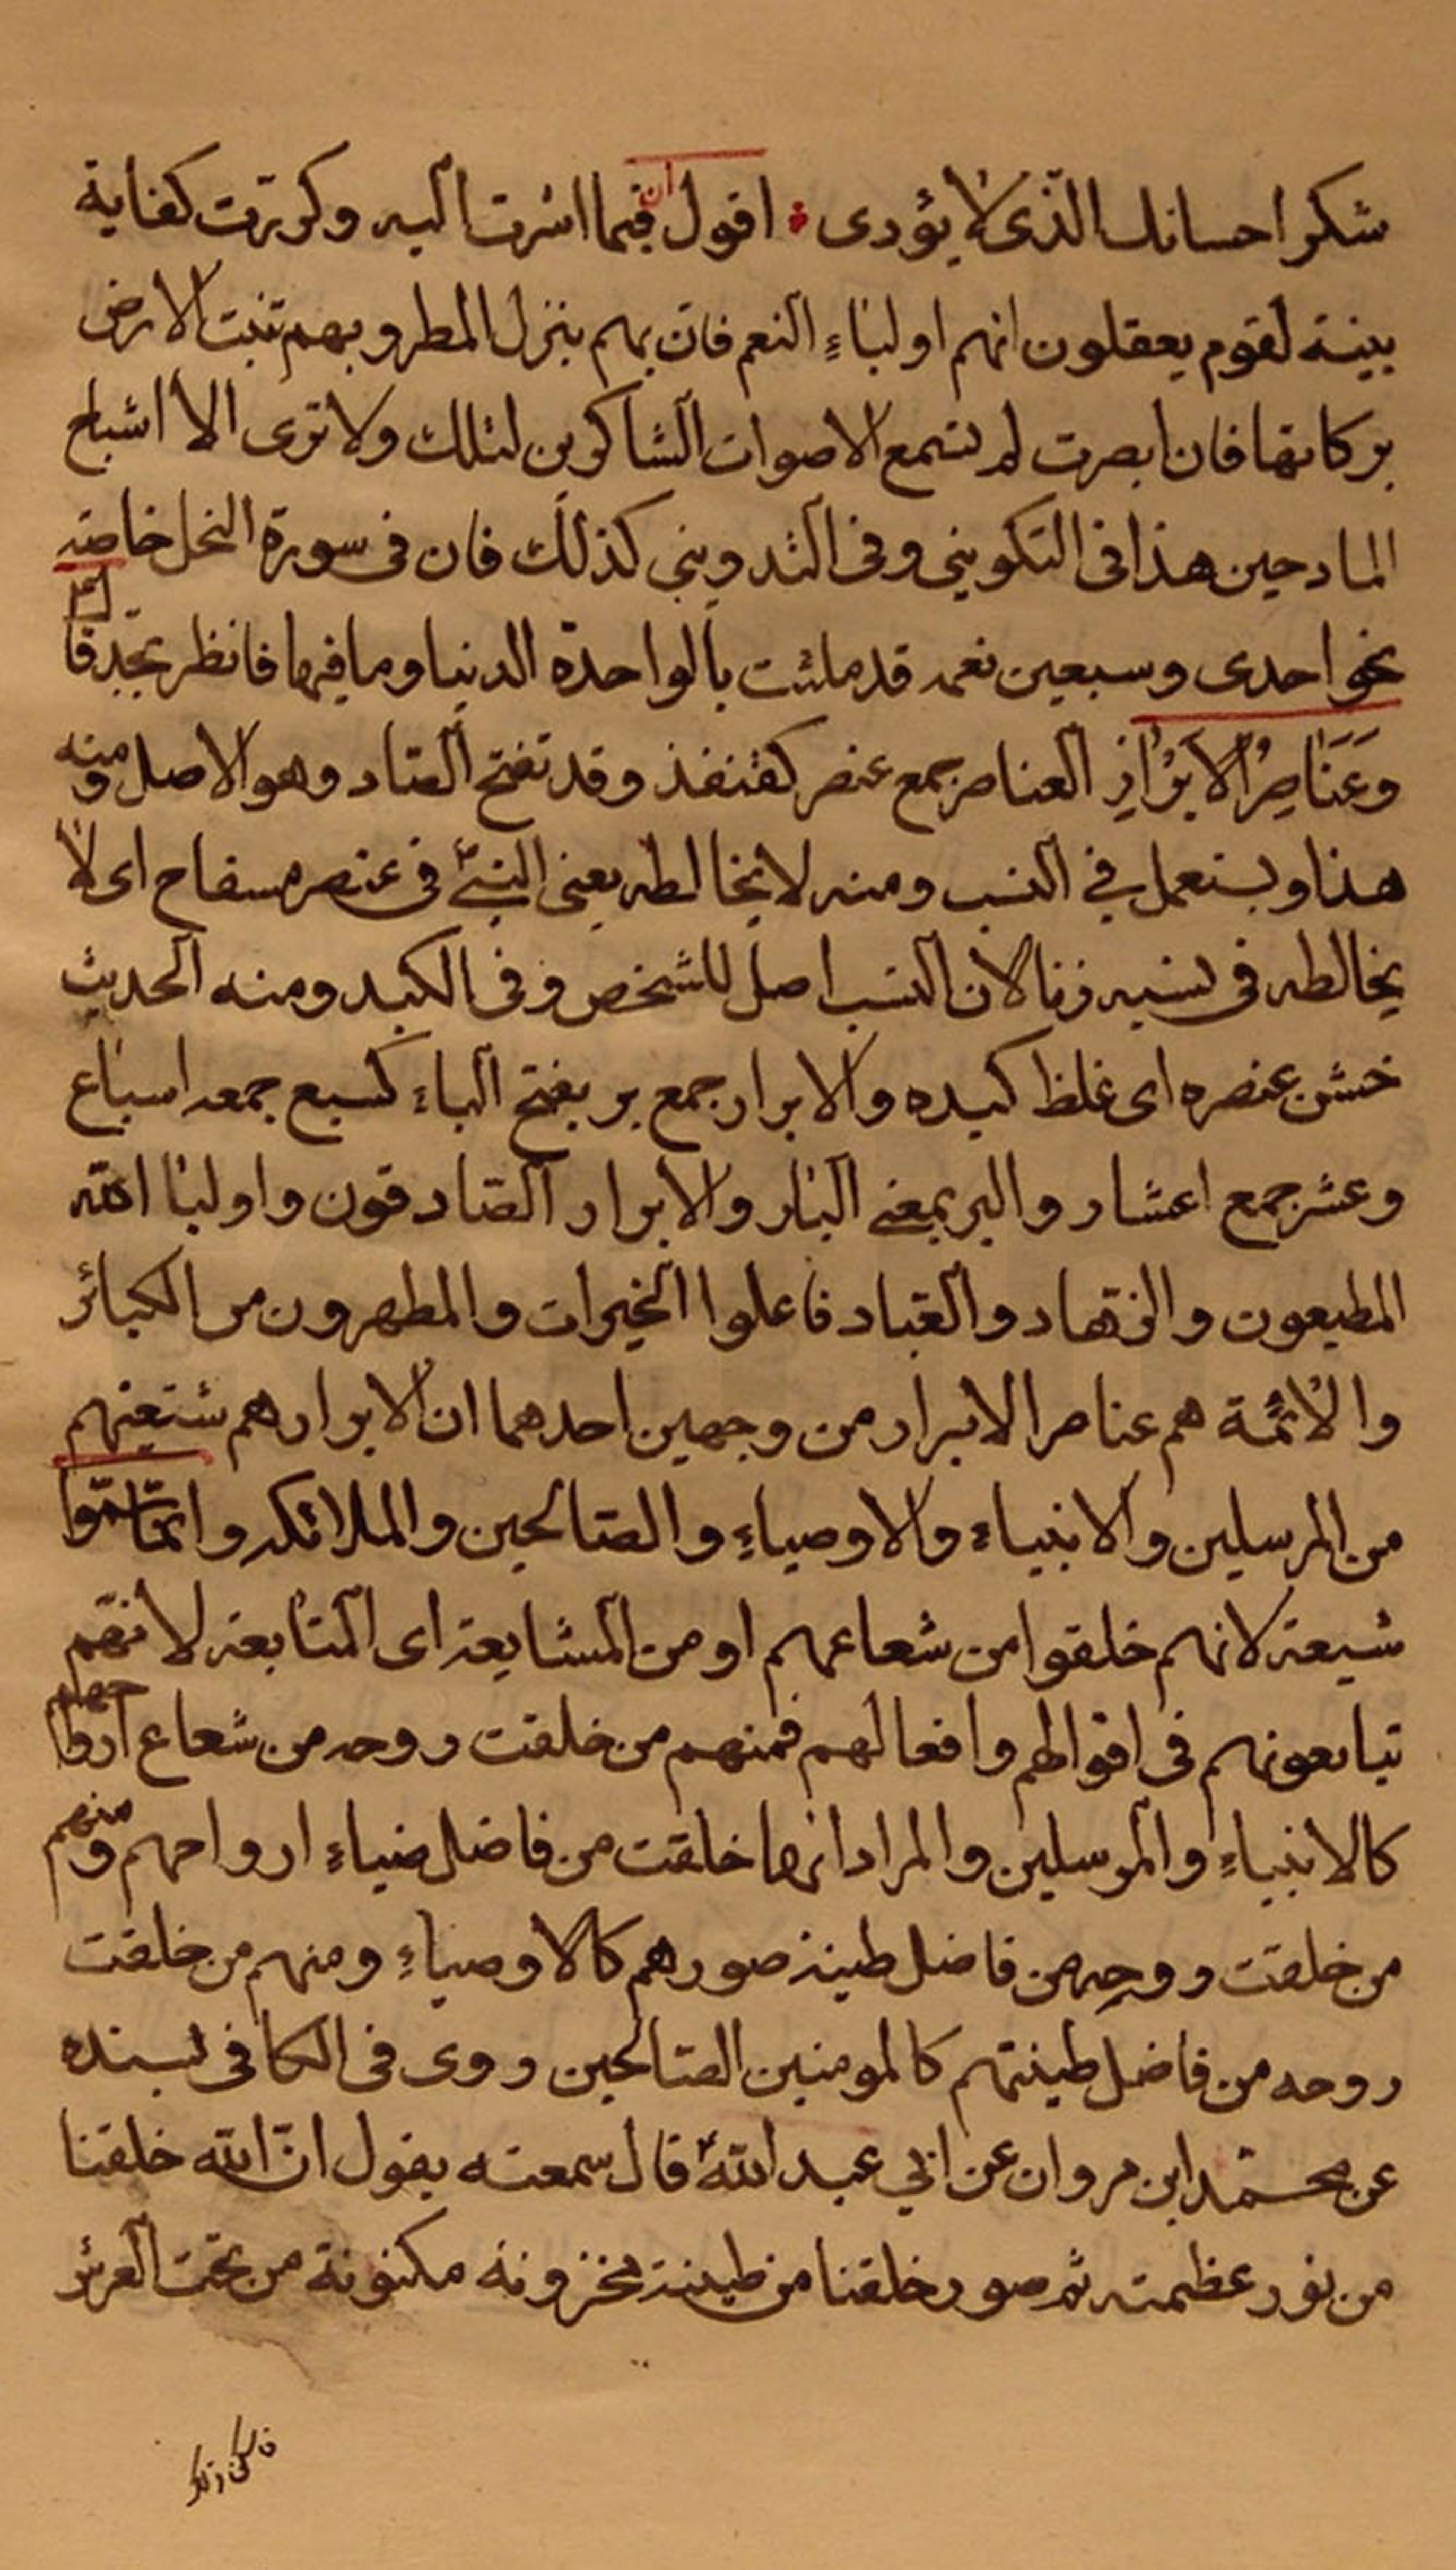 شكر احسانك الذى لا يؤدى ؛ اقول ان فيما اشرت اليه وكررت كفاية
بينة لقوم يعقلون انهم اولياءِ النعم فان بهم ينزل المطر وبهم تنبت الارض
بركاتها فان ابصرت لم تسمع الا صوات الشاكرين لتلك ولا ترى الا اشباح
المادحين هذا فى التكوينى وفى التدوينى كذلك فان فى سورة النحل خاصة
نحو احدى وسبعين نعمه قد ملئت بالواحدة الدنيا وما فيها فانظر تجد قا
وَعَنَاصِرُ الاَبْرَارِ العناصر جمع عنصر كقنفذ وقد تفتح الصاد وهو الاصل ومنه
هذا ويستعمل في النسب ومنه لا يخالطه يعنى النبىّ فى عنصره سفاح اى لا
يخالطه فى نسبه زنا لان النسب اصل للشخص وفى الكبد ومنه الحديث
خشن عنصره اى غلظ كبده والابرار جمع بر بفتح الباء كسبع جمعه اسباع
وعشر جمع اعشار والبر بمعنى البار والابرار الصادقون واوليا الله
المطيعون والزهاد والعباد فاعلوا الخيرات والمطهرون من الكبائر
والائمة هم عناصر الابرار من وجهين احدهما ان الابرار هم شيعتهم
من المرسلين والانبياء والاوصياءِ والصالحين والملائكه وانما سموا
شيعة لانهم خلقوا من شعاعهم او من المشايعة اى المتابعة لانهم
تبايعونهم فى اقوالهم وافعالهم فمنهم من خلقت روحه من شعاع ارواحهم
كالانبياءِ والمرسلين والمراد انها خلقت من فاضل ضياءِ ارواحهم ومنهم
من خلقت روحه من فاضل طينة صورهم كالاوصياءِ ومنهم من خلقت
روحه من فاضل طينتهم كالمومنين الصالحين روى فى الكافى بسنده
عن محمد ابن مروان عن ابي عبد اللهؑ قال سمعته يقول ان الله خلقنا
من نور عظمته ثم صور خلقنا من طينة مخزونة مكنونة من تحت العرش